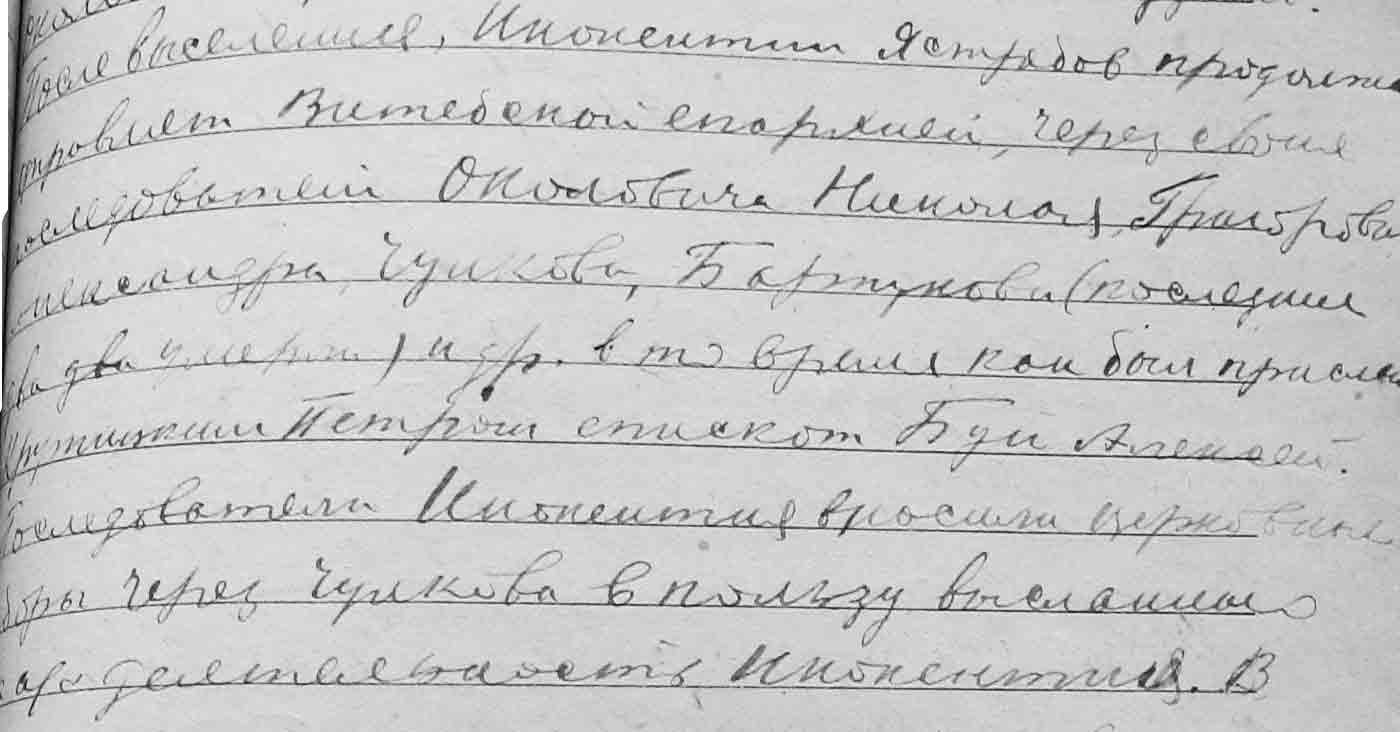 После выселения, Инокентии Ястребов продолжа
управляет Витебской епархией, через своих
последователей Околовича Николая, Григорови
Александра, Чулкова, Бартукова (последние
два умерли) и др. в то время как был прислан
Крутицким Петром епископ Буй Алексей.
Последователи Инокентия вносили церковные
сборы через Чулкова в пользу высланного
деятельность Инокентия. В